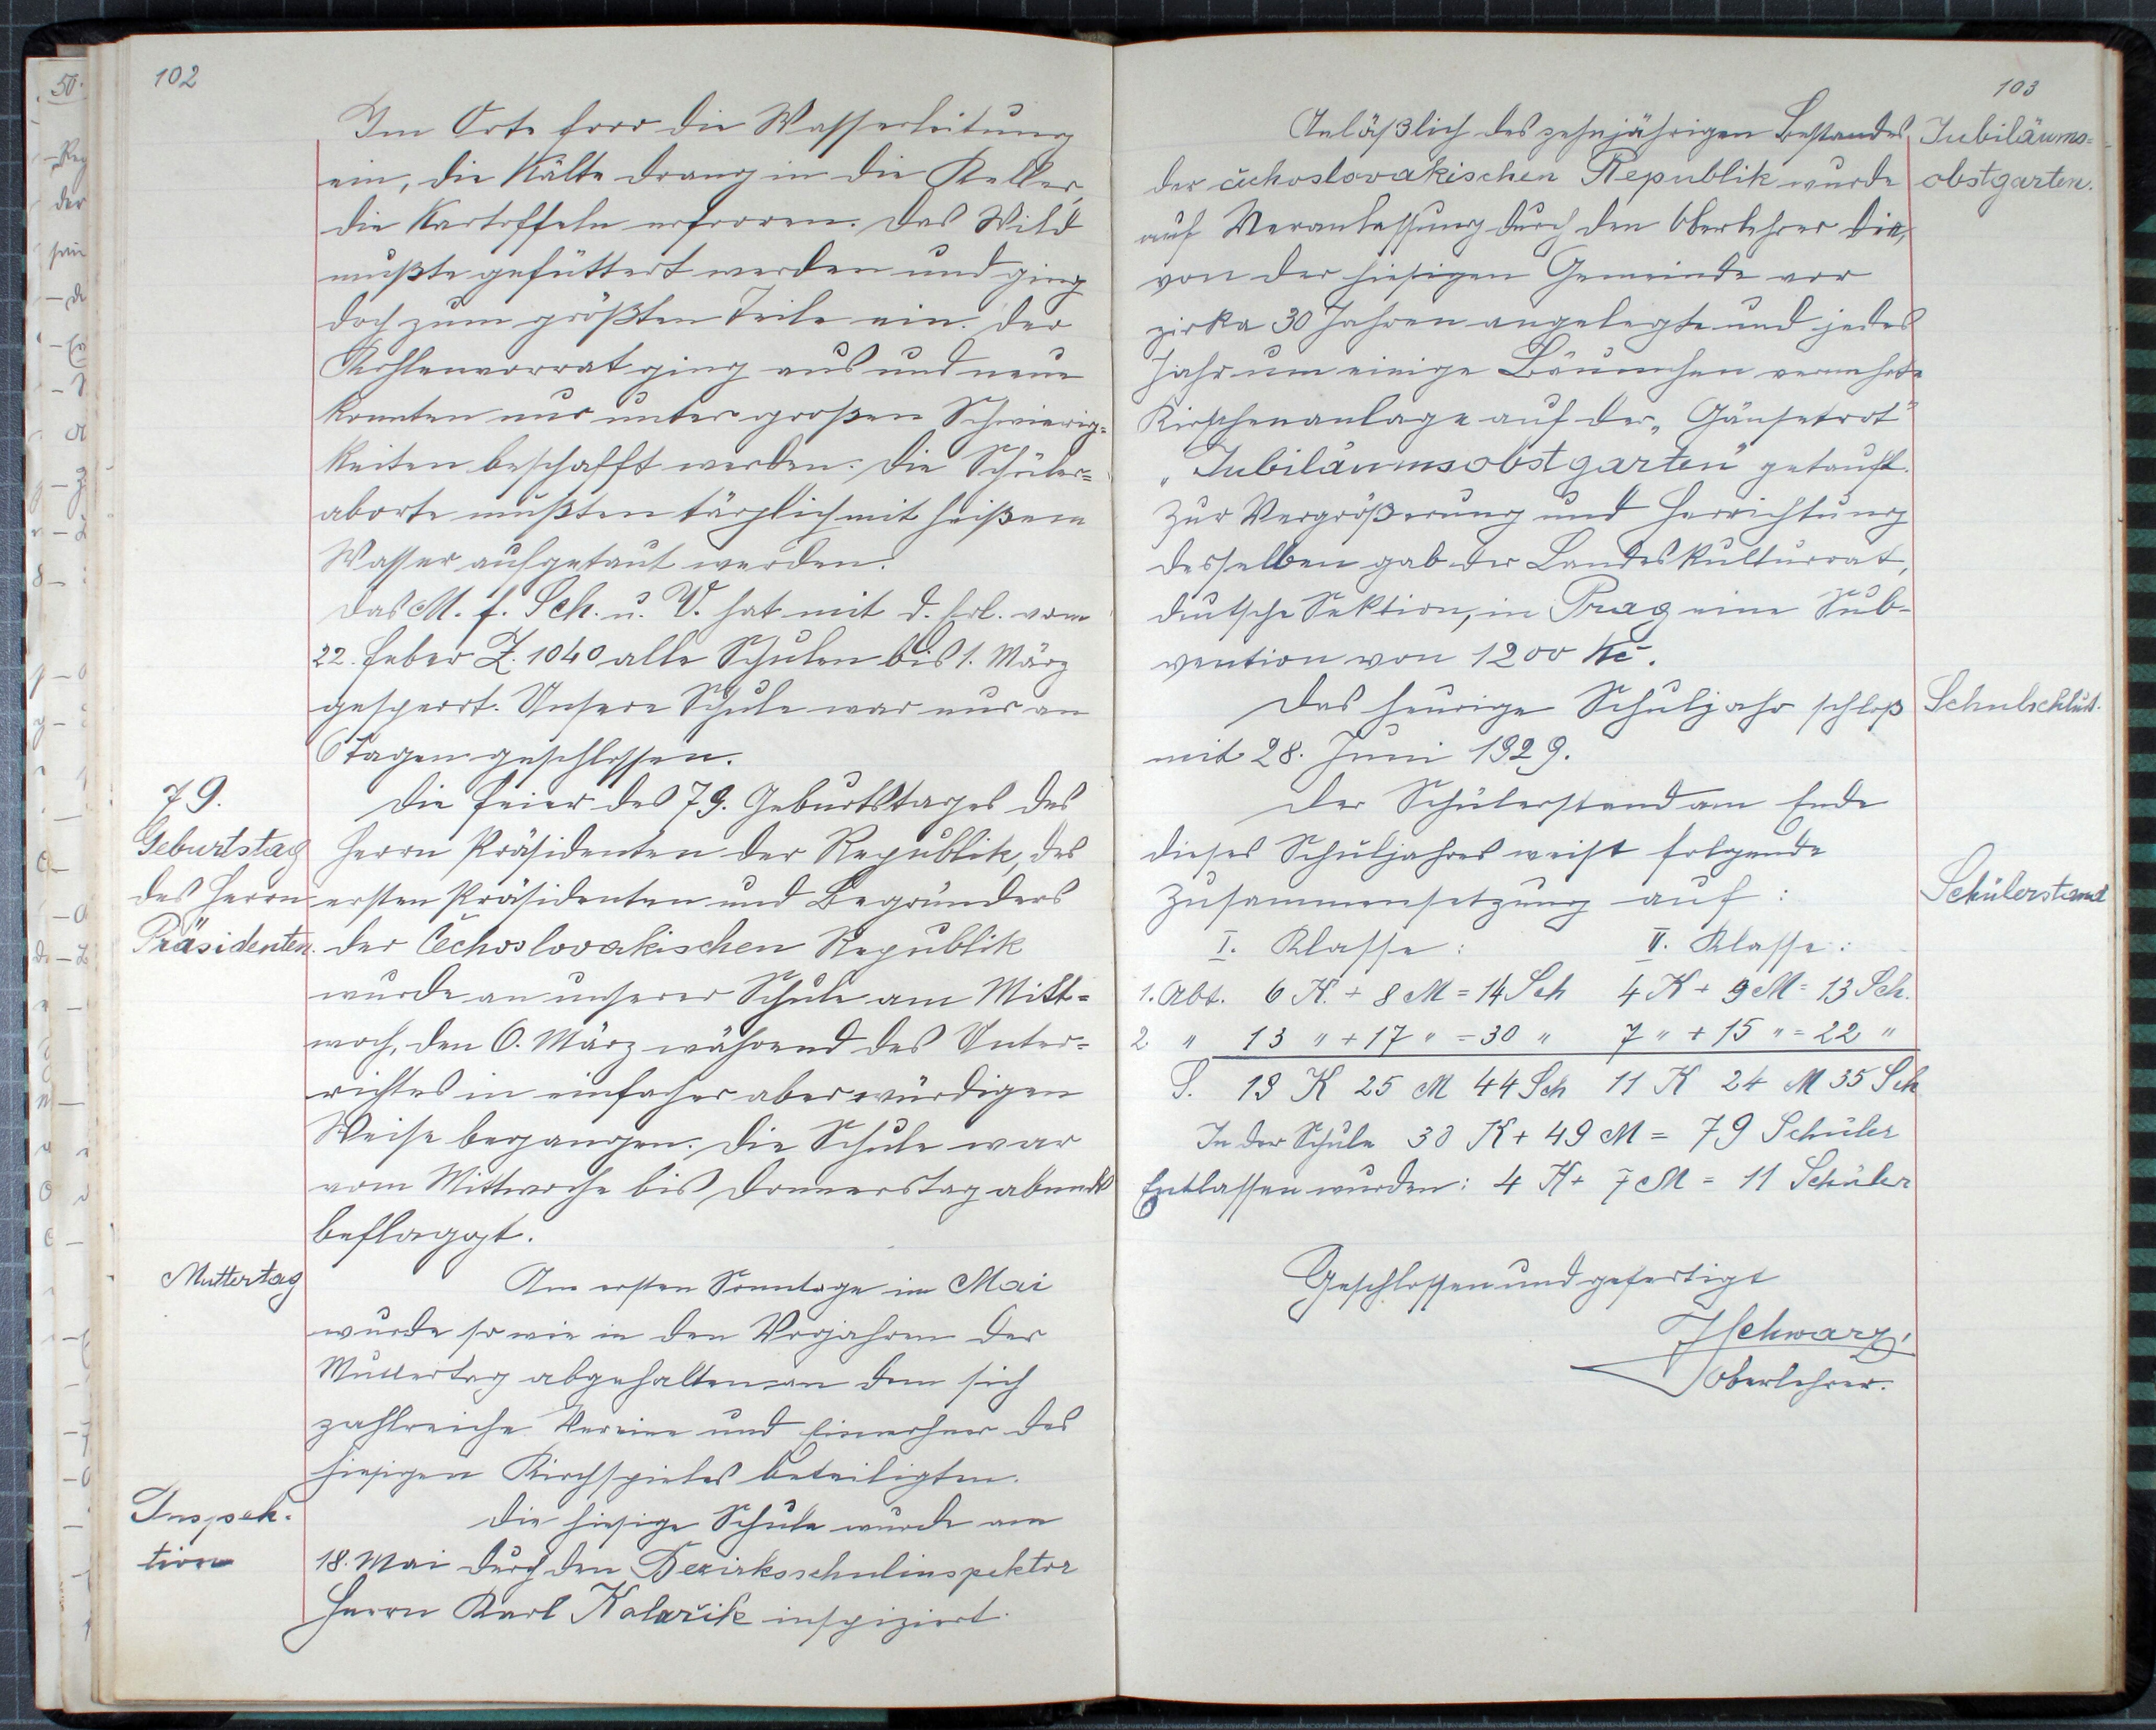 102
Im Orte fror die Wasserleitung
ein, die Kälte drang in die Keller,
die Kartoffeln erfroren. Das Wild
mußte gefüttert werden und ging
doch zum größten Teile ein. Der
Kohlenvorrat ging aus und neue
konnten nur unter großen Schwierig=
keiten beschafft werden. Die Schüler=
aborte mußten täglich mit heißem
Wasser aufgetaut werden.
Das M. f. Sch. u. V. hat mit d. Erl. vom
22. Feber Z. 1040 alle Schulen bis 1. März
gesperrt. Unsere Schule war nur an
6 Tagen geschlossen.
79.
Geburtstag
des Herrn
Präsidenten.
Die Feier des 79. Geburtstages des
Herrn Präsidenten der Republik, des
ersten Präsidenten und Begründers
der Čechoslovakischen Republik
wurde an unserer Schule am Mitt=
woch, den 6. März während des Unter=
richtes in einfacher aber würdigen
Weise begangen. Die Schule war
vom Mittwoche bis Donnerstag abends
beflaggt.
Muttertag
Am ersten Sonntage im Mai
wurde so wie in den Vorjahren der
Muttertag abgehalten an dem sich
zahlreiche Vereine und Einwohner des
hiesigen Kirchspieles beteiligten.
Inspek-
tion
Die hiesige Schule wurde am
18. Mai durch den Bezirksschulinspektor
Herrn Karl Kolařik inspiziert.
103
Jubiläums=
obstgarten.
Anläßlich des zehnjährigen Bestandes
der čechoslovakischen Republik wurde
auf Veranlassung durch den Oberlehrer die,
von der hiesigen Gemeinde vor
zirka 30 Jahren angelegte und jedes
Jahr um einige Bäumchen vermehrte
Kirschenanlage auf der „Gänsetrat"
„Jubiläumsobstgarten" getauft.
Zur Vergrößerung und Herrichtung
desselben gab der Landeskulturrat,
deutsche Sektion, in Prag eine Sub-
vention von 1200 Kč.
Schulschluß.
Das heurige Schuljahr schloß
mit 28. Juni 1929.
Schülerstand
Der Schülerstand am Ende
dieses Schuljahres weist folgende
Zusammensetzung auf:
I. Klasse: II. Klasse:
1. Abt. 6 K. + 8 M = 14 Sch 4 K + 9 M = 13 Sch.
2 " 13 " + 17 " = 30 " 7 " + 15 " = 22 "
S. 19 K 25 M 44 Sch 11 K 24 M 35 Sch
In der Schule 30 K + 49 M = 79 Schüler
Entlassen wurden: 4 K + 7 M = 11 Schüler
Geschlossen und gefertigt
JSchwarz,
Oberlehrer.